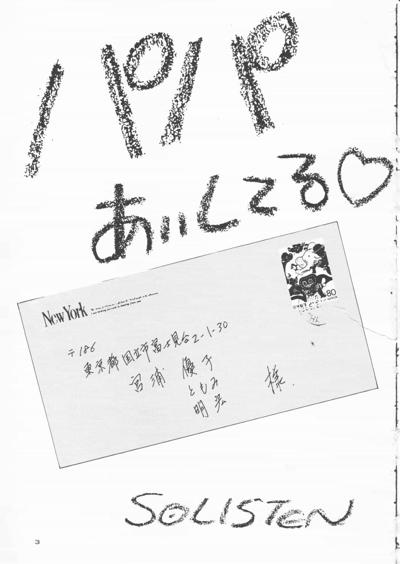 パパ
あいしてる♡
New York
80
〒186
東京都国立市富士見台2-1-30
宮浦 優子
ともみ
明宏
様
SOLISTEN
3